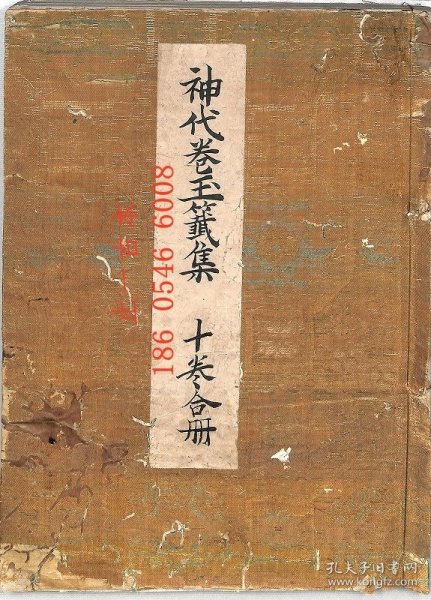 神代巻玉籤集 十巻合册
186 0546 6008
孔夫子旧书网
www.kongfz.com